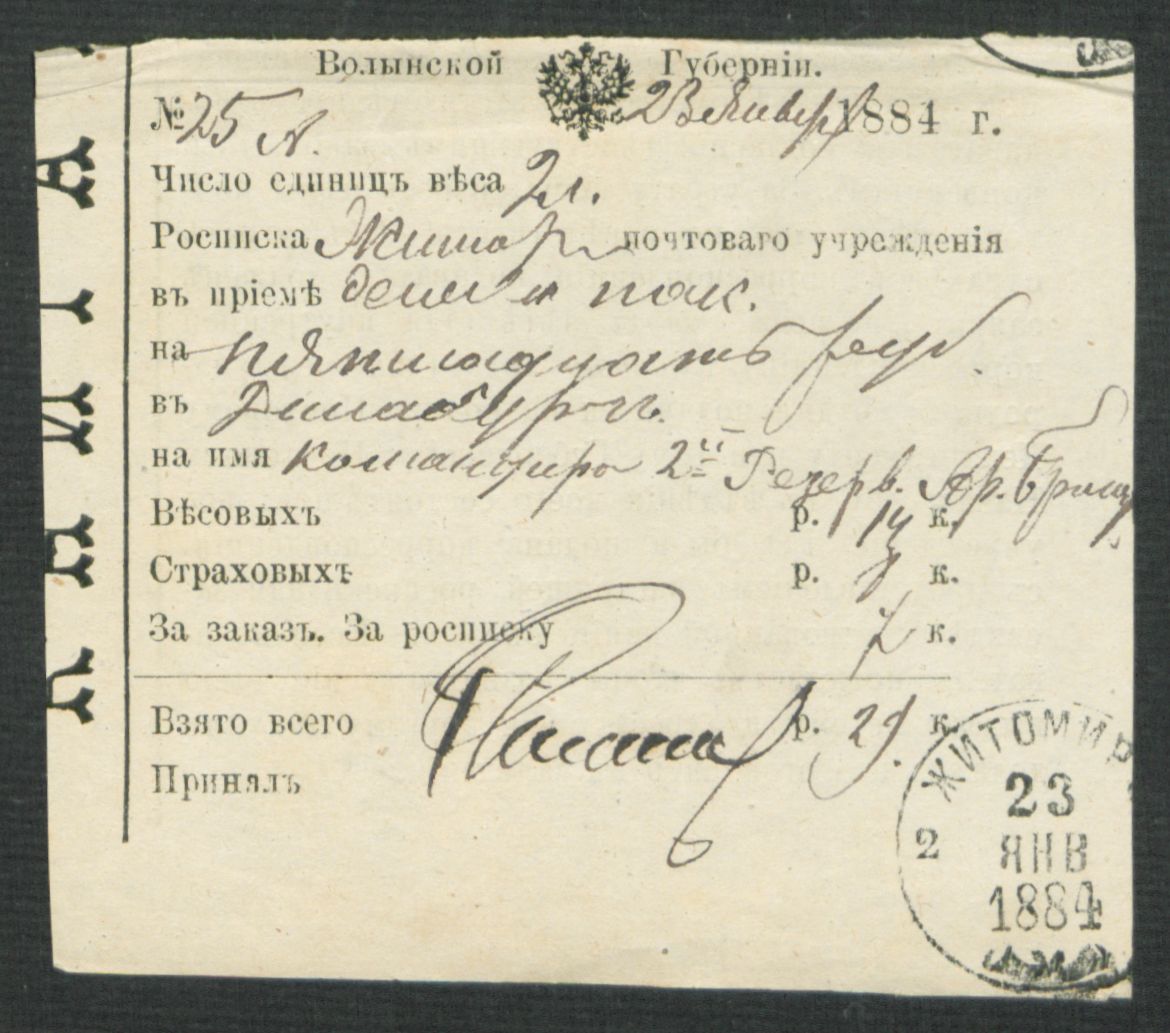 Волынской Губерніи.
№ 25 А. 23 Январ 1884 г.
Число единицъ вѣса 2 л.
Росписка Житор почтоваго учрежденія
въ пріемѣ ден. пак.
на пятнадцать руб
въ Динабургъ.
на имя командира 2й Резерв. Ар. Бриг
Вѣсовыхъ р. 14 к.
Страховыхъ р. 8 к.
За заказъ. За росписку 7 к.
Взято всего р. 29 к.
Принялъ
ЖИТОМИР
2
23
ЯНВ
1884